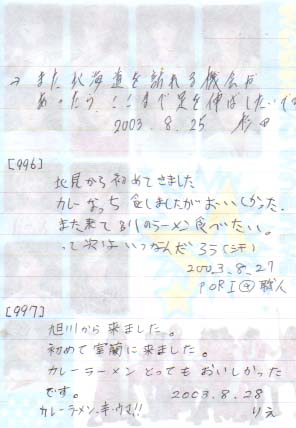 → また北海道を訪れる機会が
あったら、!! まで足を伸ばしたい
2003.8.25 杉田
[996]
北見から初めてきました
カレー なっち 食しましたがおいしかった。
また来て 別のラーメン食べたい。
って次は いつなんだろう(汗)
2003.8.27
PORI④職人
[997]
旭川から来ました。
初めて室蘭に来ました。
カレーラーメン とっても おいしかった
です。 2003.8.28
カレーラーメン、 りえ